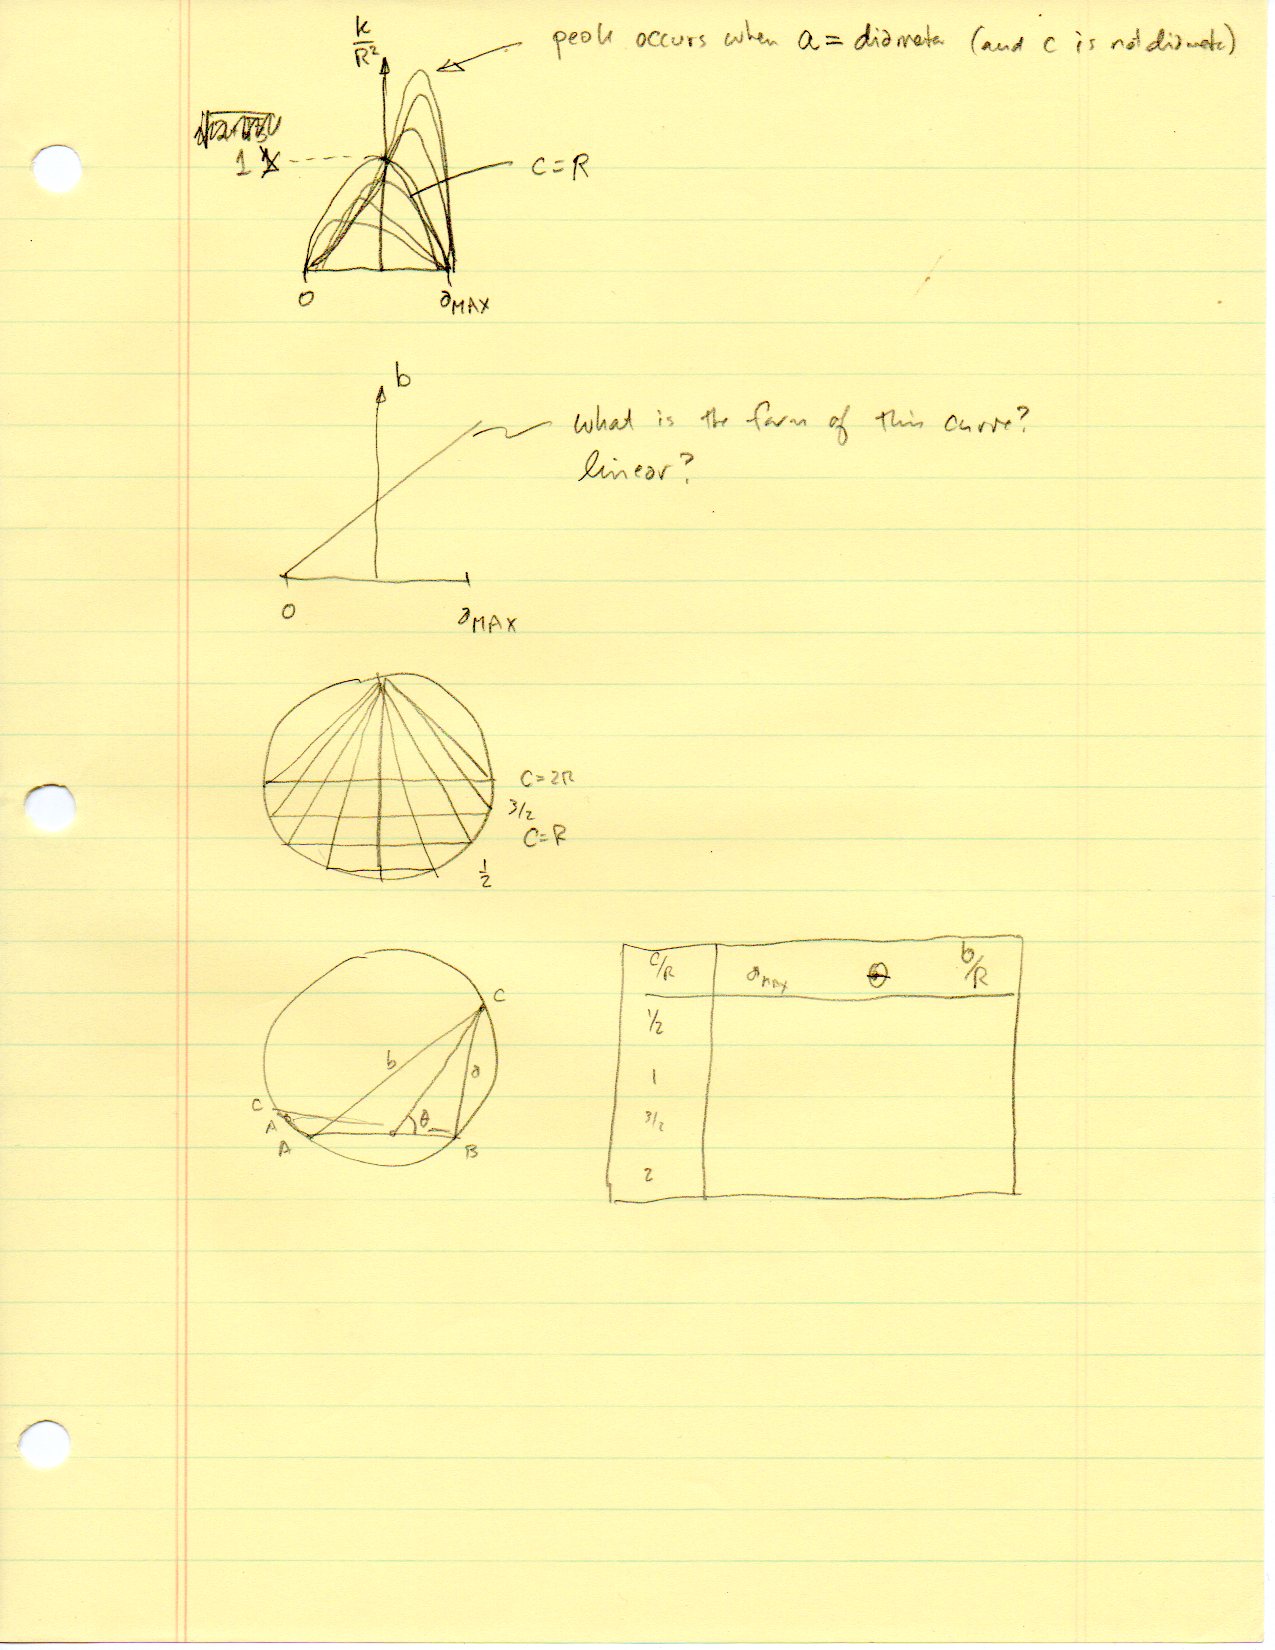 k/R²
peak occurs when a = diameter (and c is not diameter)
1
C = R
0
aMAX
b
what is the form of this curve?
linear?
0
aMAX
C=2R
3/2
C=R
1/2
C
b
a
θ
C
A
A
B
c/R
amax
θ
b/R
1/2
1
3/2
2